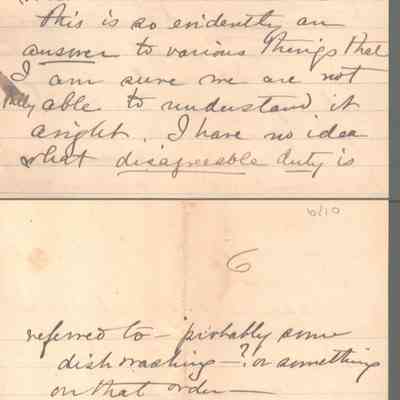 this is so evidently an
answer to various things that
I am sure we are not
fully able to understand it
aright. I have no idea
what disagreeable duty is
6
referred to - probably some
dish washing -? or something
on that order -